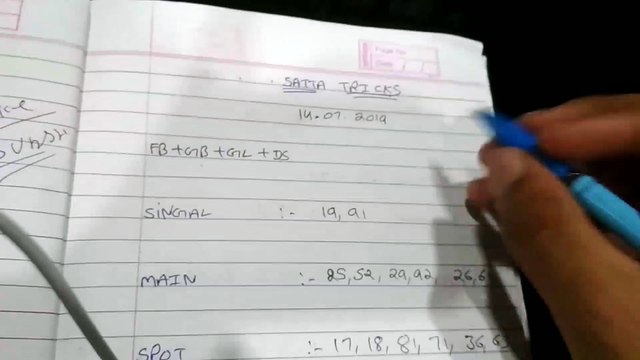 Page No.
Date
SATTA TRICKS
14.07.2019
FB+GB+GL+DS
SINGAL :- 19, 91
MAIN :- 25, 52, 29, 92, 26, 6
SPOT :- 17, 18, 81, 71, 36, 63